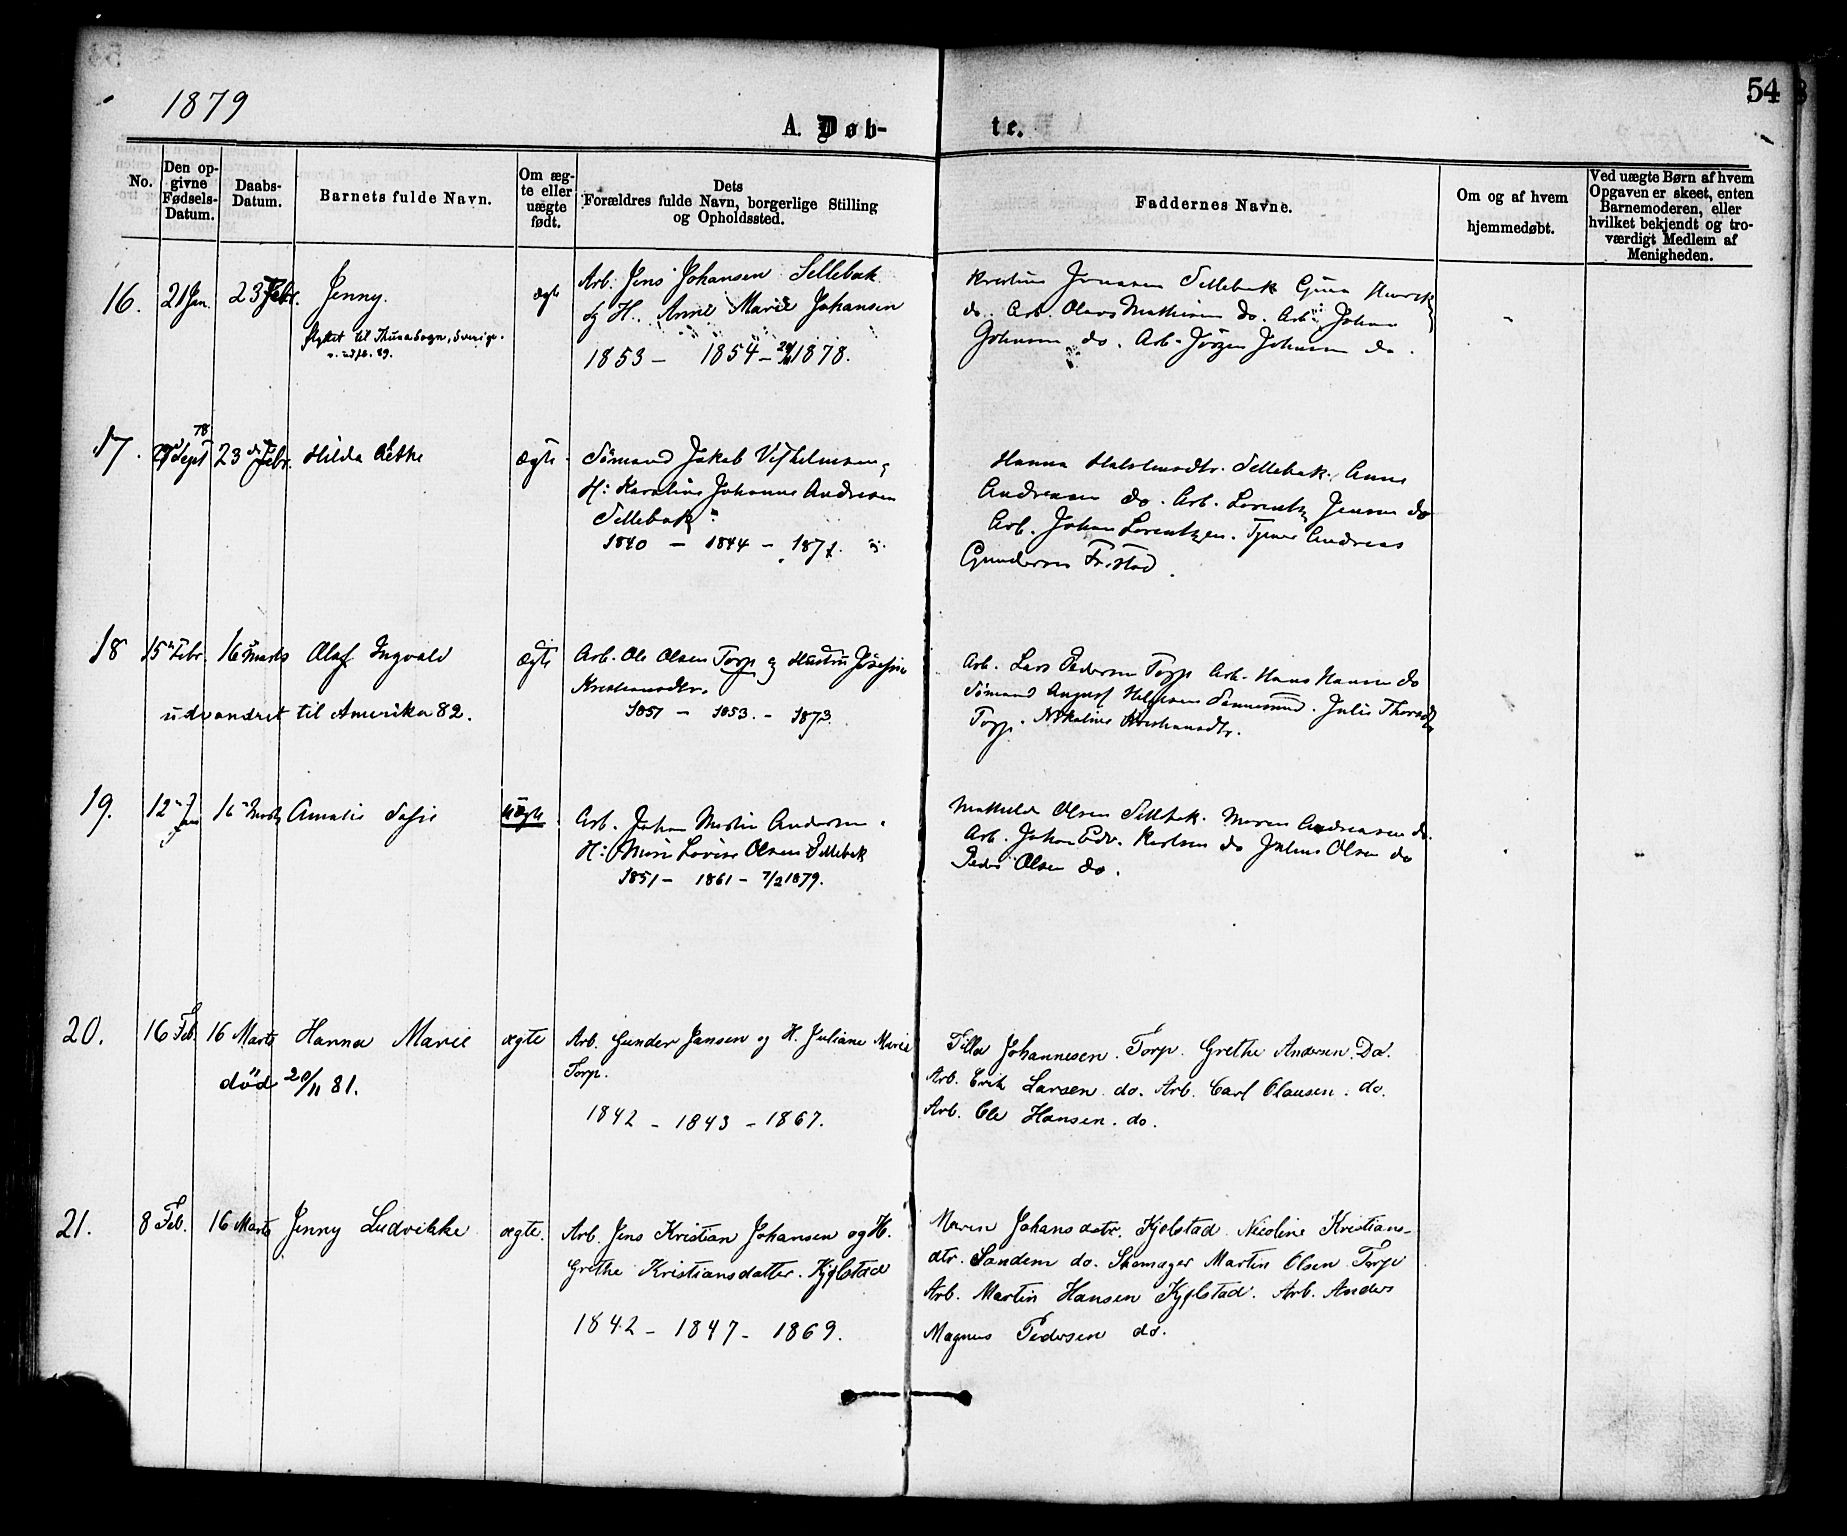 54
1879
A. Døb-
te.
No.
Den op-
givne
Fødsels-
Datum.
Daabs-
Datum.
Barnets fulde Navn.
Om æg-
te eller
uægte
født.
Dets
Forældres fulde Navn, borgerlige Stilling
og Opholdssted.
Faddernes Navne.
Om og af hvem
hjemmedøbt.
Ved uægte Børn af hvem
Opgaven er skeet, enten
Barnemoderen, eller
hvilket bekjendt og tro-
værdigt Medlem af
Menigheden.
16.
21 Jan.
23 Febr.
Jenny.
flyttet til Sverige.
ægte
Arb. Jens Johansen Sellebak
og H. Anne Marie Johansen
1853 - 1854 - 1878.
Sellebak
do. Arb. Olaves Mathisen do. Arb. Johan
Johansen do. Arb. Jørgen Johnsen do.
17.
78
Sept
23 Febr.
Hilda
ægte
Sømand Jakob Vilhelmsen,
H: Karoline Johanne Andresen
Sellebak
1840 - 1844 - 187
Hanna Sellebak. Anne
Andreasen do. Arb. Lorentz Jensen do
Arb. Johan Lorentzen. Tjener Andreas
Gundersen Fr.stad.
18
15 Febr.
16 Marts
Olaf Ingvald
udvandret til Amerika 82.
ægte
Arb. Ole Olsen Torp og Hustru Josefine
Kristiansdtr.
1851 - 1853. - 1873.
Arb. Lars Pedersen Torp Arb. Hans Hansen do
Sømand August. Julie
Torp. Nikoline Kristiansdtr.
19.
12 Jan
16 Marts
Amalie Sofie
uægte
Arb. Johan Martin Andersen.
H: Marie Lovise Olsen Sellebak
1851 - 1861 - 7/2 1879.
Mathilde Olsen Sellebak. Maren Andreasen do.
Arb. Johan Edv. Karlsen do Julius Olsen do
Peder Olsen do.
20.
16 Feb.
16 Marts
Hanna Marie
død 20/11 81.
ægte
Arb. Gunder Jansen og H. Juliane Marie
Torp.
1842 - 1843 - 1867.
Johannesen. Torp. Grethe Andersen. Do.
Arb. Erik Larsen do. Arb. Carl Olausen. do.
Arb. Ole Hansen. do.
21.
8 Feb.
16 Marts
Jenny Ludvikke
ægte.
Arb. Jens Kristian Johansen og H.
Grethe Kristiansdatter. Kjølstad
1842 - 1847 - 1869.
Maren Johansdatr. Kjølstad Nicoline Kristians-
dtr. Sandem do. Skomager Martin Olsen Torp
Arb. Martin Hansen Kjølstad. Arb. Anders
Magnus Pedersen do.